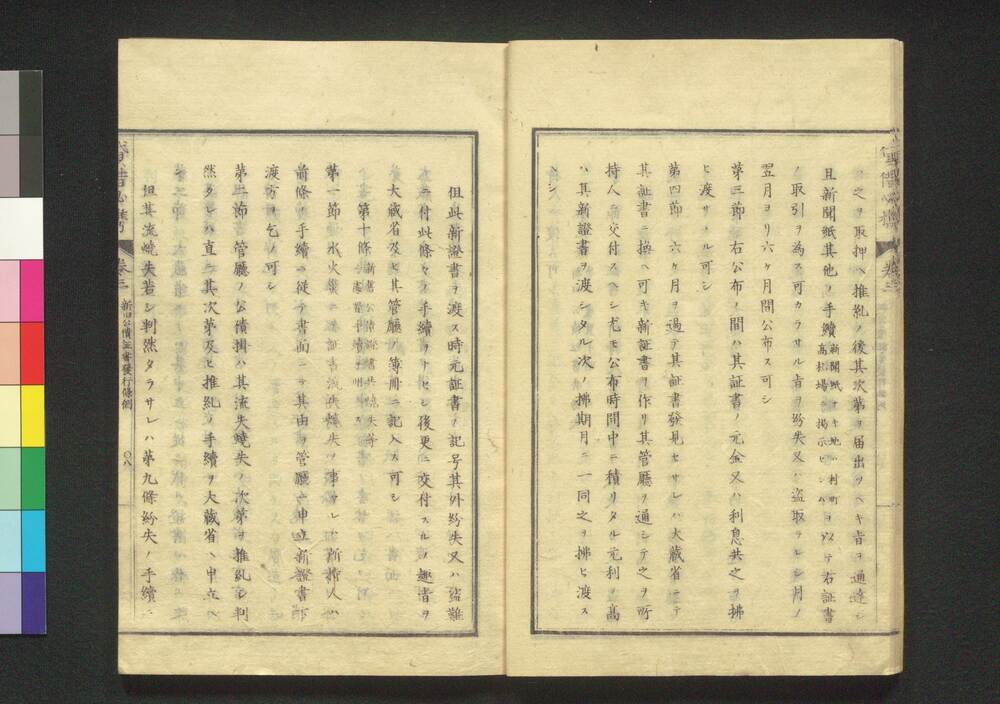 之ヲ取押ヘ推糺ノ後其次第ヲ届出ツヘキ旨ヲ通達シ
且新聞紙其他ノ手續 新聞紙ナキ地ハ村町高札場ヘ掲示ヲ以テ右証書
ノ取引ヲ為ス可カラサル旨ヲ紛失又ハ盗取ラレシ月ノ
翌月ヨリ六ヶ月間公布ス可シ
第三節 右公布ノ間ハ其証書ノ元金又ハ利息共之ヲ拂
ヒ渡サヽル可シ
第四節 六ヶ月ヲ過テ其証書發見セサレハ大藏省ニテ
其証書ニ換ヘ可キ新証書ヲ作リ其管廳ヲ通シテ之ヲ所
持人ニ交付スヘシ尤モ公布時間中ニ積リタル元利ノ高
ハ其新證書ヲ渡シタル次ノ拂期月ニ一同之ヲ拂ヒ渡ス
ヘシ
但此新證書ヲ渡ス時元証書ノ記号其外紛失又ハ盗難
ニ付此條々ノ手續ヲナセシ後更ニ交付スルノ趣旨ヲ
大藏省及ヒ其管廳ノ簿冊ニ記入ス可シ
第十條 新舊公債證書共燒失等
第一節 水火災ニテ証書流失燒失ノ事アレハ所持人ハ
前條ノ手續ニ従テ書面ニテ其由ヲ管廳ヘ申立新證書下
渡方ヲ乞フ可シ
第二節 管廳ノ公債掛ハ其流失燒失ノ次第ヲ推糺シ判
然タレハ直ニ其次第及ヒ推糺ノ手續ヲ大藏省ヘ申立ヘシ
但其流燒失若シ判然タラサレハ第九條紛失ノ手續ニ
卷三
新旧公債証書發行條例
〇八